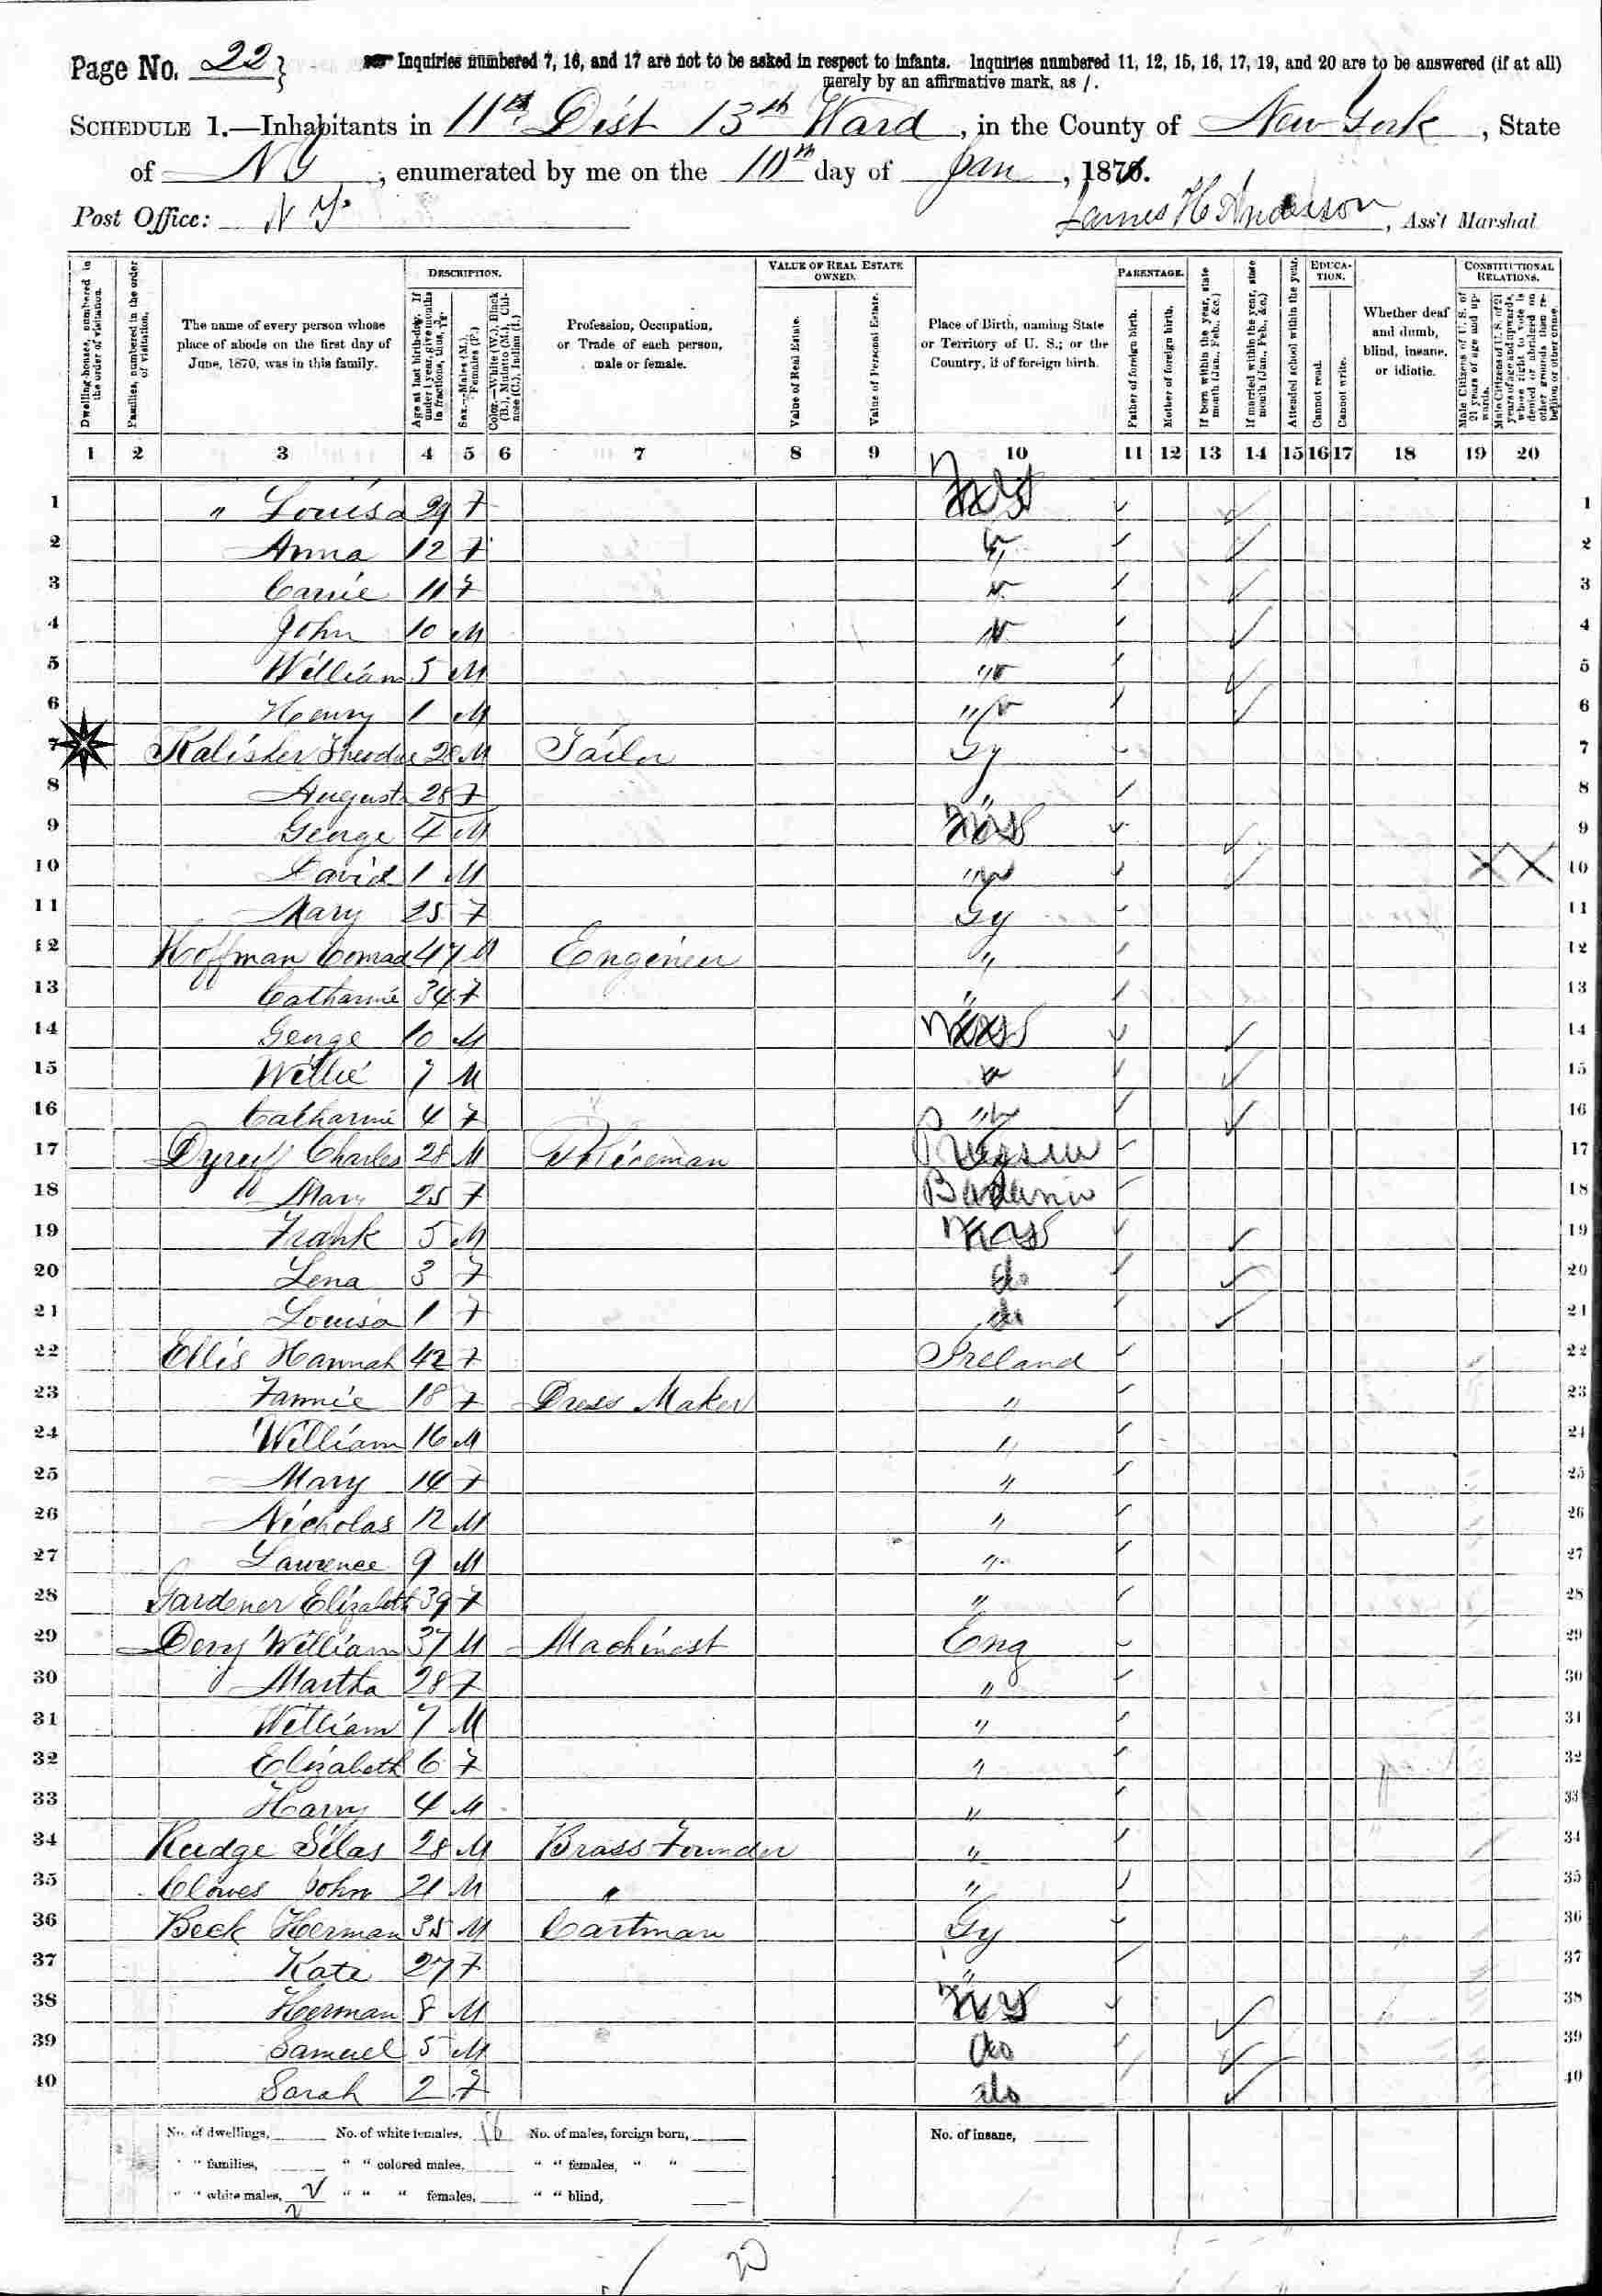 Page No. 22 Inquiries numbered 7, 16, and 17 are not to be asked in respect to infants. Inquiries numbered 11, 12, 15, 16, 17, 19, and 20 are to be answered (if at all)
merely by an affirmative mark, as /.
SCHEDULE 1.—Inhabitants in 11th Dist 13th Ward, in the County of New York, State
of N Y, enumerated by me on the 10th day of Jan, 187
Post Office: N Y. James H Anderson, Ass't Marshal
DESCRIPTION. VALUE OF REAL ESTATE OWNED. PARENTAGE. EDUCATION. CONSTITUTIONAL RELATIONS.
Dwelling-houses, numbered in the order of visitation. Families, numbered in the order of visitation. The name of every person whose place of abode on the first day of June, 1870, was in this family. Age at last birth-day. If under 1 year, give months in fractions, thus, Sex.—Males (M.), Females (F.) Color.—White (W.), Black (B.), Mulatto (M.), Chinese (C.), Indian (I.) Profession, Occupation, or Trade of each person, male or female. Value of Real Estate. Value of Personal Estate. Place of Birth, naming State or Territory of U. S.; or the Country, if of foreign birth. Father of foreign birth. Mother of foreign birth. If born within the year, state month (Jan., Feb., &c.) If married within the year, state month (Jan., Feb., &c.) Attended school within the year. Cannot read. Cannot write. Whether deaf and dumb, blind, insane, or idiotic. Male Citizens of U. S. of 21 years of age and upwards. Male Citizens of U. S. of 21 years of age and upwards, whose right to vote is denied or abridged on other grounds than rebellion or other crime.
1 2 3 4 5 6 7 8 9 10 11 12 13 14 15 16 17 18 19 20
1 " Louisa 29 F 1
2 Anna 12 F 2
3 Carrie 11 F 3
4 John 10 M 4
5 William 5 M 5
6 Henry 1 M 6
7 Kalisker Theodore 28 M Tailor Gy 7
8 Augusta 28 F " 8
9 George 4 M 9
10 David 1 M 10
11 Mary 25 F Gy 11
12 Hoffman Conrad 47 M Engineer " 12
13 Catharine 34 F " 13
14 George 10 M 14
15 Willie 7 M 15
16 Catharine 4 F 16
17 Charles 28 M Policeman Prussia 17
18 Mary 25 F 18
19 Frank 5 M 19
20 Lena 3 F do 20
21 Louisa 1 F do 21
22 Ellis Hannah 42 F Ireland 22
23 Fannie 18 F Dress Maker " 23
24 William 16 M " 24
25 Mary 14 F " 25
26 Nicholas 12 M " 26
27 Lawrence 9 M " 27
28 Gardener Elizabeth 39 F " 28
29 Dery William 37 M Machinest Eng 29
30 Martha 28 F " 30
31 William 7 M " 31
32 Elizabeth 6 F " 32
33 Harry 4 M " 33
34 Rudge Silas 28 M Brass Founder " 34
35 Clowes John 21 M " " 35
36 Beck Herman 35 M Cartman Gy 36
37 Kate 27 F " 37
38 Herman 8 M N Y 38
39 Samuel 5 M do 39
40 Sarah 2 F do 40
No. of dwellings, No. of white females, 16 No. of males, foreign born, No. of insane,
" " families, " " colored males, " " females, " "
" " white males, " " " females, " " blind,